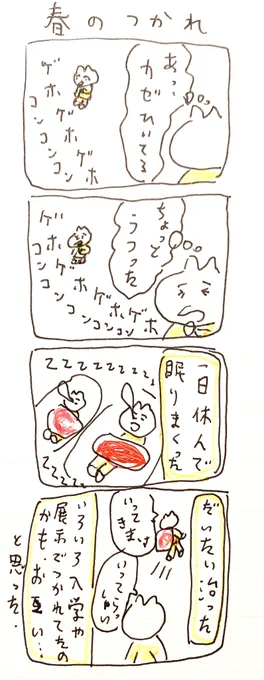 春のつかれ
あっ…
カゼひいてる
ゲホゲホ
コンコンコン
ちょっと
うつった
ゲホゲホゲホゲホ
コンコンコンコンコン
一日休んで
眠りまくった
ZZZZZZZZ
ZZZZZ
だいたい治った
いって
きまーす
いってらっ
しゃい
いろいろ入学や
展示でつかれてたの
かも。お互い…
と思った.